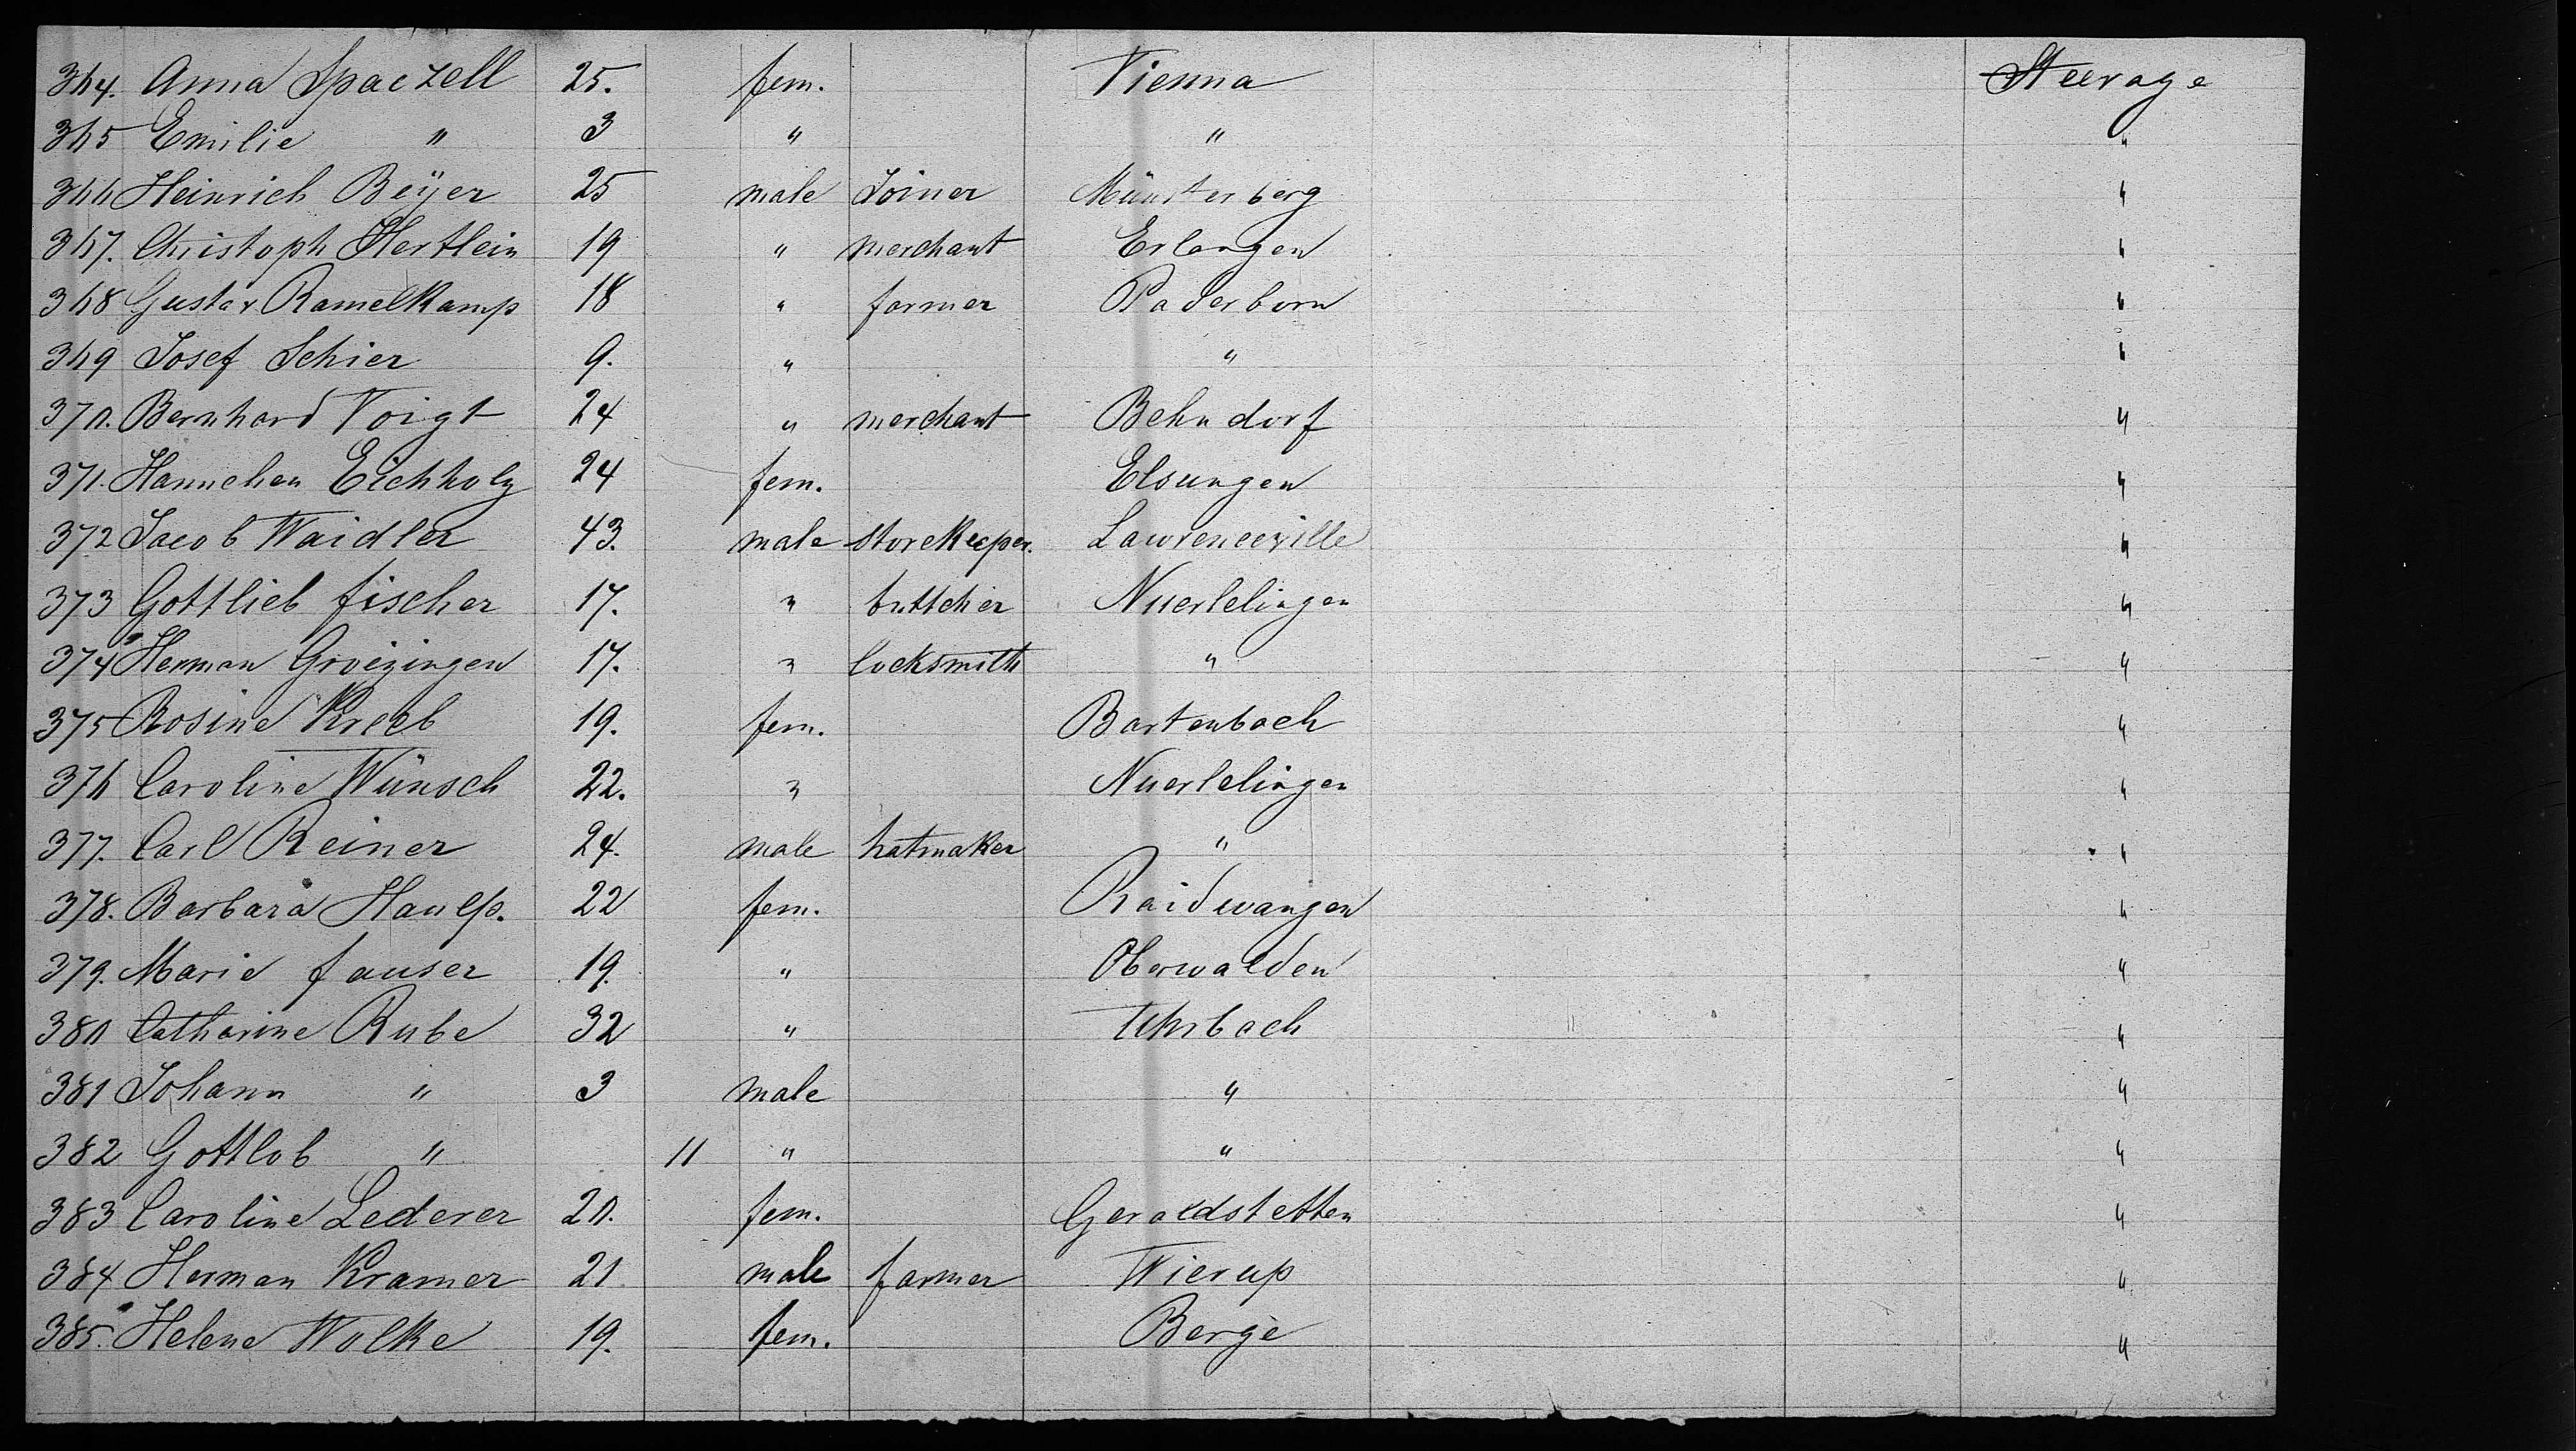 364. Anna Spaczell 25. fem. Vienna Steerage
365 Emilie " 3 " " "
366 Heinrich Beÿer 25 male Joiner Münsterberg "
367. Christoph Hertlein 19 " merchant Erlangen "
368 Gustav Ramelkamp 18 " farmer Paderborn "
369 Josef Schier 9. " " "
370. Bernhard Voigt 24 " merchant Behndorf "
371. Hannchen Eichholz 24 fem. Elsungen "
372 Jacob Waidler 43. male storekeeper. Lawrenceville "
373 Gottlieb fischer 17. " buttcher Nuerlelingen "
374 Herman Groezingen 17. " locksmith " "
375 Rosine Kreeb 19. fem. Bartenbach "
376 Caroline Wünsch 22. " Nuerlelingen "
377. Carl Reiner 24. male hatmaker " "
378. Barbara 22 fem. Raidwangen "
379. Marie fauser 19. " Oberwalden "
380 Catharine Rube 32 " Uhrbach "
381 Johann " 3 male " "
382 Gottlob " 11 " " "
383 Caroline Lederer 20. fem. Geraldstetten "
384 Herman Kramer 21. male farmer Wierup "
385. Helene Wolke 19. fem. Berge "